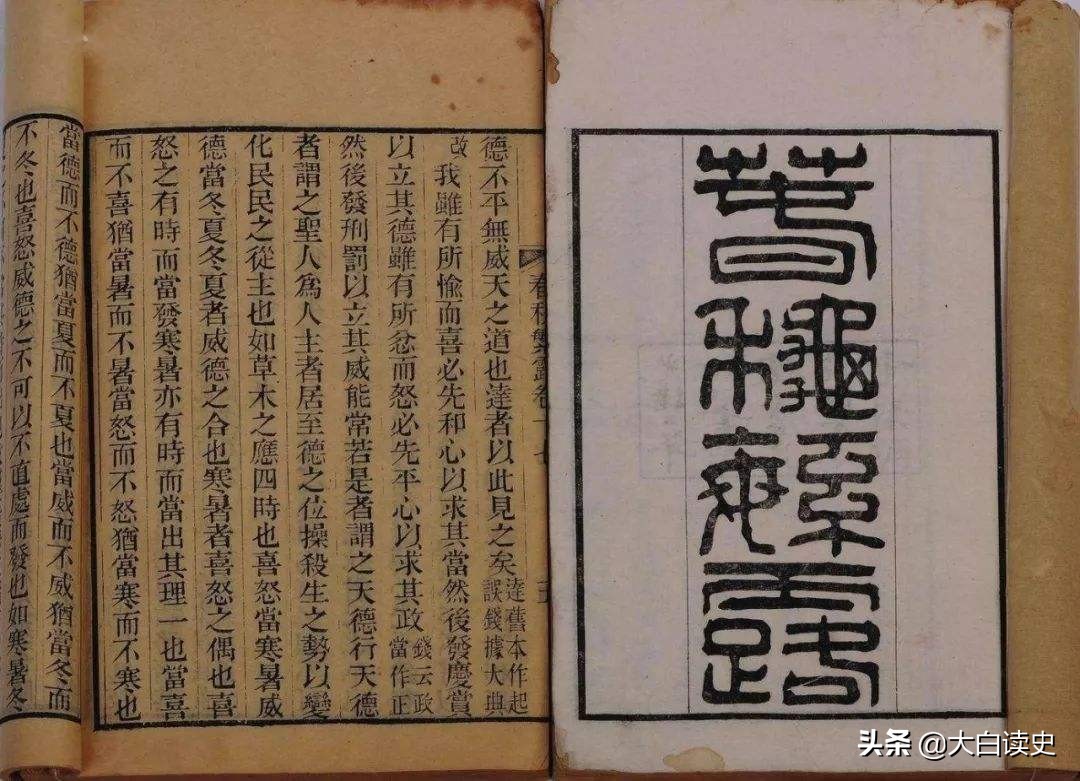 春秋繁露
春秋繁露卷十七
德不平無威天之道也達者以此見之矣達舊本作起誤錢據大典
改我雖有所愉而喜必先和心以求其當然後發慶賞
以立其德雖有所忿而怒必先平心以求其政錢云政當作正
然後發刑罰以立其威能常若是者謂之天德行天德
者謂之聖人爲人主者居至德之位操殺生之勢以變
化民民之從主也如草木之應四時也喜怒當寒暑威
德當冬夏冬夏者威德之合也寒暑者喜怒之偶也喜
怒之有時而當發寒暑亦有時而當出其理一也當喜
而不喜猶當暑而不暑當怒而不怒猶當寒而不寒也
當德而不德猶當夏而不夏也當威而不威猶當冬而
不冬也喜怒威德之不可以不直處而發也如寒暑冬
头条 @大白读史